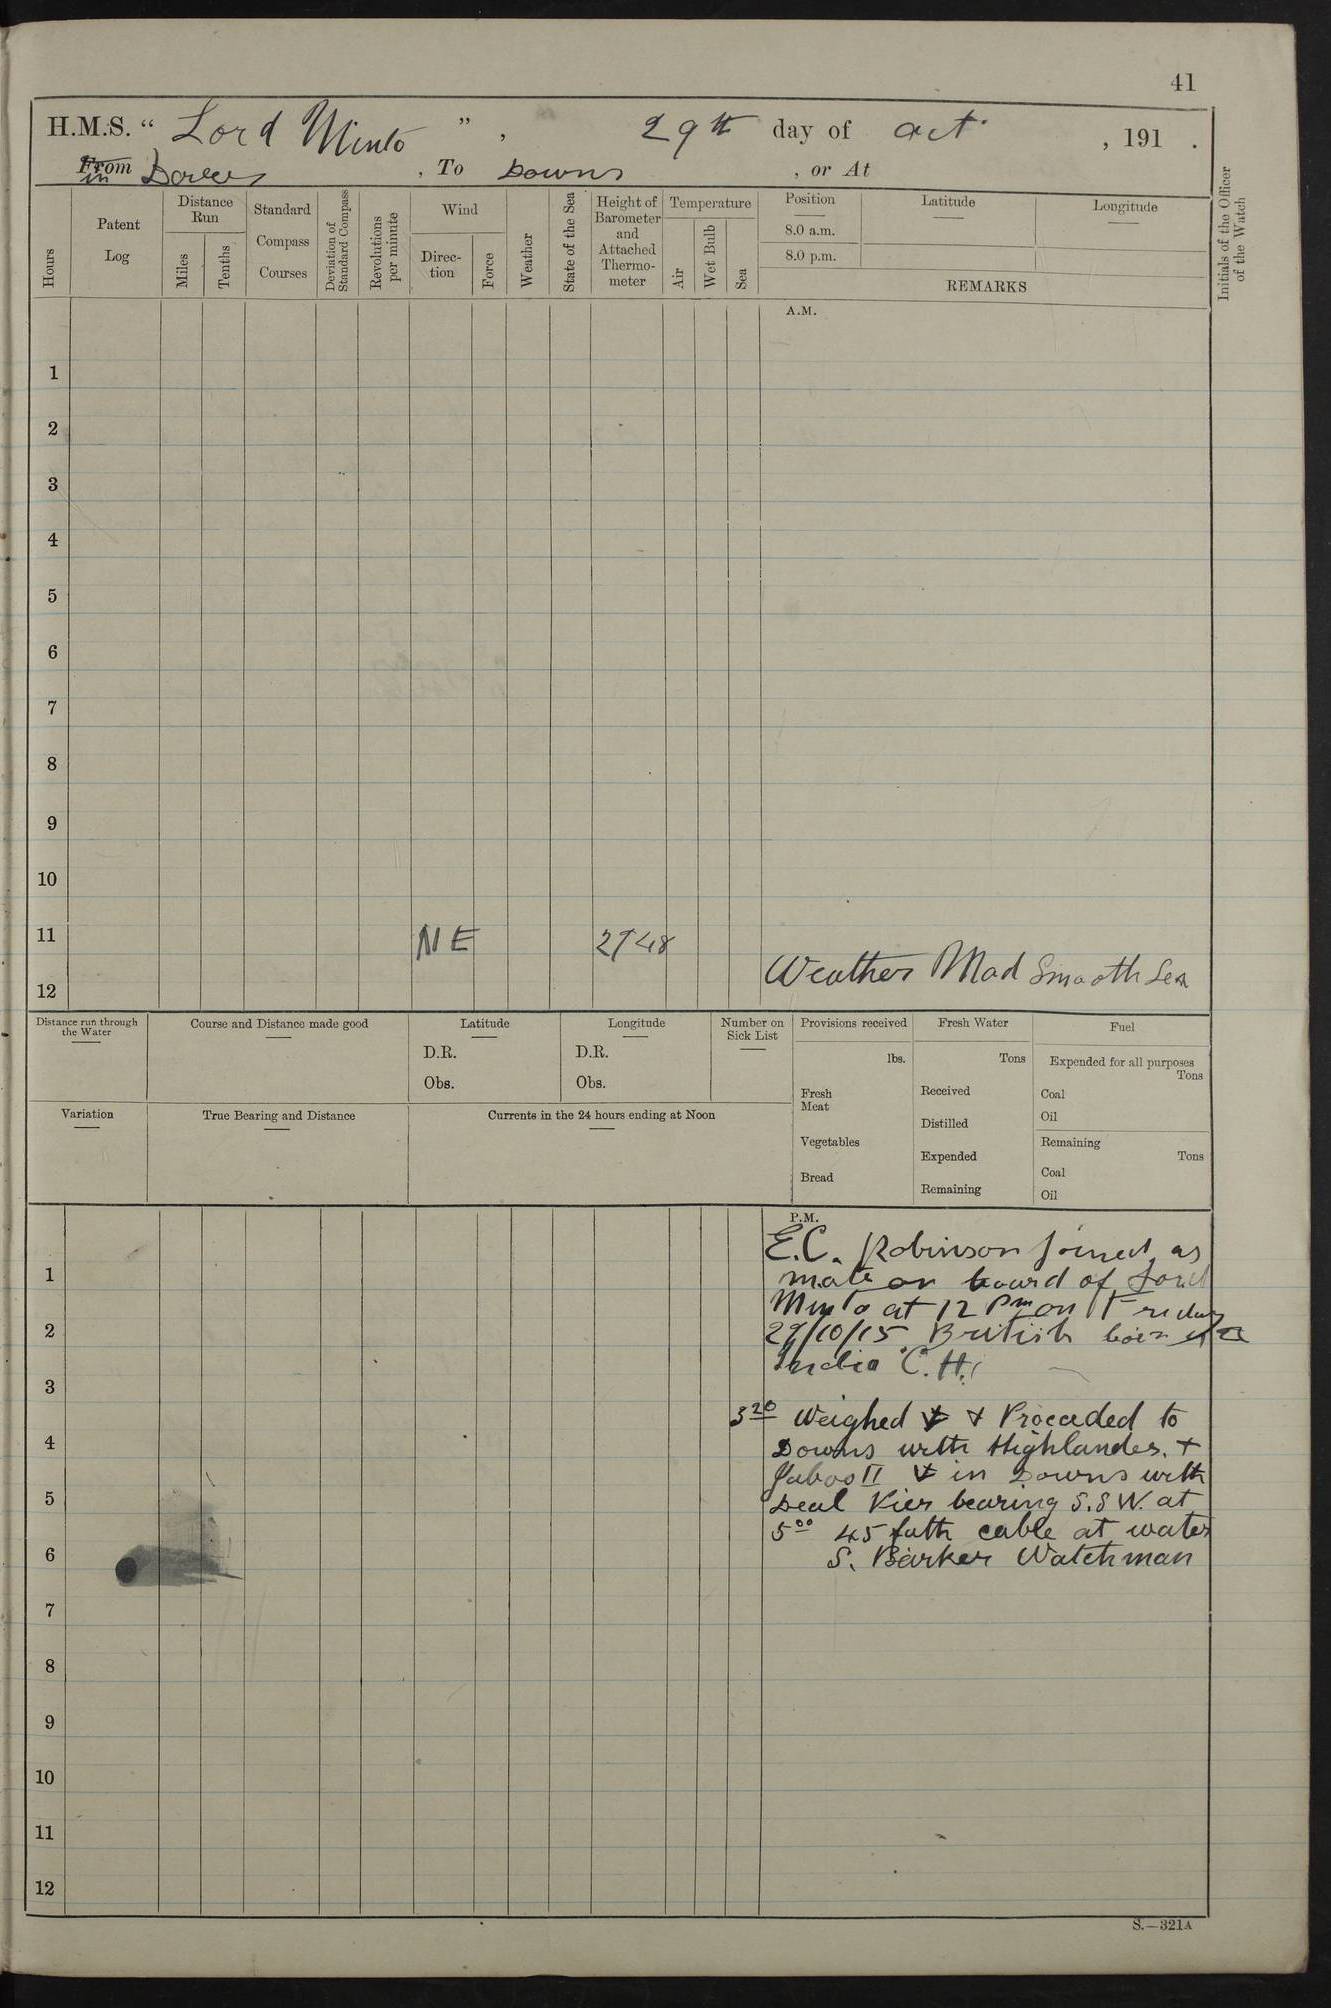 41
H.M.S. “ Lord Minto ” , 29th day of Oct. , 191 .
From in Dover , To Downs , or At
Hours
Patent Log
Distance Run
Miles
Tenths
Standard Compass Courses
Deviation of Standard Compass
Revolutions per minute
Wind
Direction
Force
Weather
State of the Sea
Height of Barometer and Attached Thermometer
Temperature
Air
Wet Bulb
Sea
Position
8.0 a.m.
8.0 p.m.
Latitude
Longitude
REMARKS
Initials of the Officer of the Watch
A.M.
1
2
3
4
5
6
7
8
9
10
11 NE
12 Weather Mod Smooth Sea
Distance run through the Water
Course and Distance made good
Latitude
D.R.
Obs.
Longitude
D.R.
Obs.
Number on Sick List
Provisions received
lbs.
Fresh Meat
Vegetables
Bread
Fresh Water
Tons
Received
Distilled
Expended
Remaining
Fuel
Expended for all purposes
Tons
Coal
Oil
Remaining
Tons
Coal
Oil
Variation
True Bearing and Distance
Currents in the 24 hours ending at Noon
P.M.
E.C. Robinson joined as
mate on board of Lord
Minto at 12 Pm on Friday
29/10/15 British born
India C.H.
3 20 Weighed ⚓ + Proceeded to
Downs with Highlander. +
II ⚓ in Downs with
Deal Pier bearing S.S.W. at
5 00 45 fath cable at water
S. Barker Watchman
1
2
3
4
5
6
7
8
9
10
11
12
S.—321A